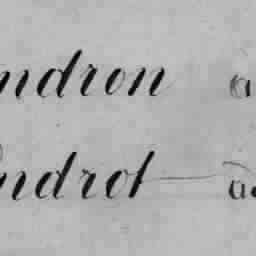 ndron a
ndrot a